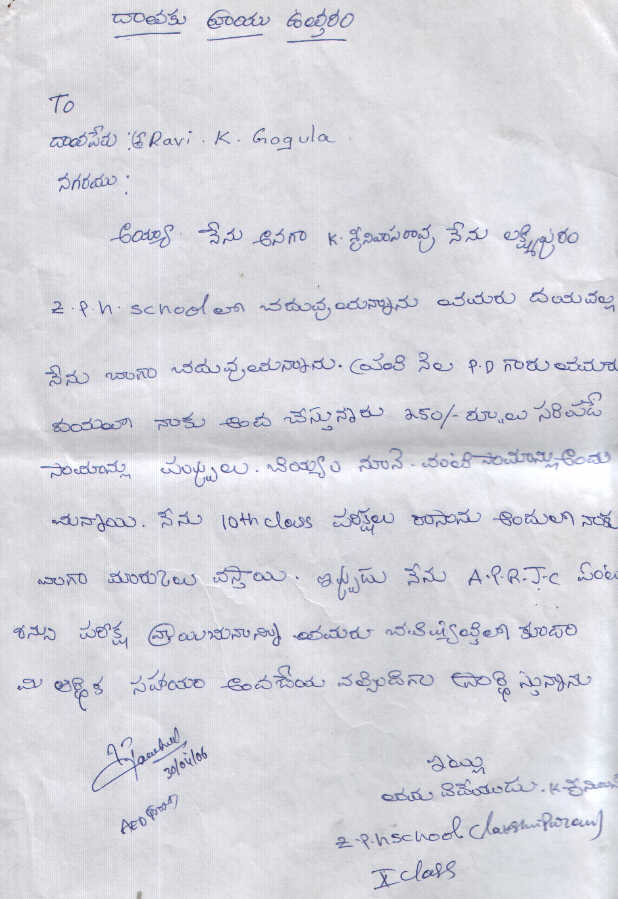 దాతకు వ్రాయు ఉత్తరం
To
దాతపేరు : శ్రీ Ravi . K . Gogula
నగరము :
అయ్యా నేను అనగా K. శ్రీనివాసరావు నేను లక్ష్మీపురం
Z.P.H. School లో చదువుచున్నాను తమరు దయవల్ల
నేను బాగా చదువుచున్నాను. ప్రతి నెల P.D గారు తమరు
నాకు అంద చేస్తున్నారు 250/- రూ.లు సరిపడే
సామాన్లు పప్పులు. బియ్యం నూనె. వంటి సామాన్లు అందు
చున్నాయి. నేను 10th class పరీక్షలు రాసాను అందులో నాకు
బాగా మార్కులు వస్తాయి. ఇప్పుడు నేను A.P.R.J.C ఎంట
రన్సు పరీక్ష వ్రాయిచున్నాను తమరు భవిష్యత్తులో కూడా
మీ ఆర్థిక సహాయం అందచేయ వల్సిందిగా ప్రార్థిస్తున్నాను
30/04/06
AED
ఇట్లు
తమ విదేయుడు. K. శ్రీనివాస
Z.P.H School (Laxshmipuram)
X class